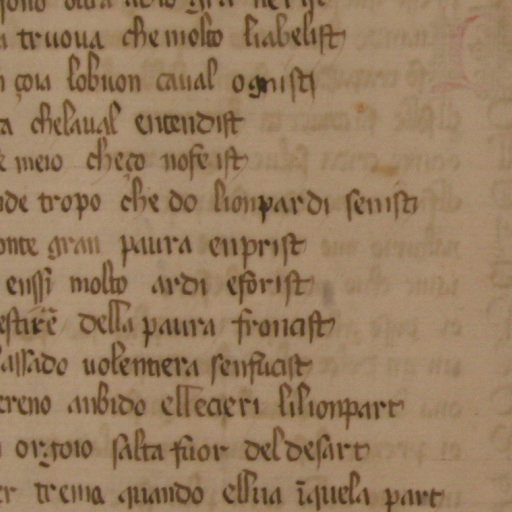 truoua che molto liabelist
çoia lobuon caual ognisti
a chelaual entendist
meio cheço nofe ist
nde tropo che do lionpardi senisti
onte gran paura enprist
enssi molto ardi eforist
della paura froncist
assado uolentiera senfucist
ereno anbido ellecieri lilionpart
orgoio salta fuor del desart
er trema quando elsua īquela part